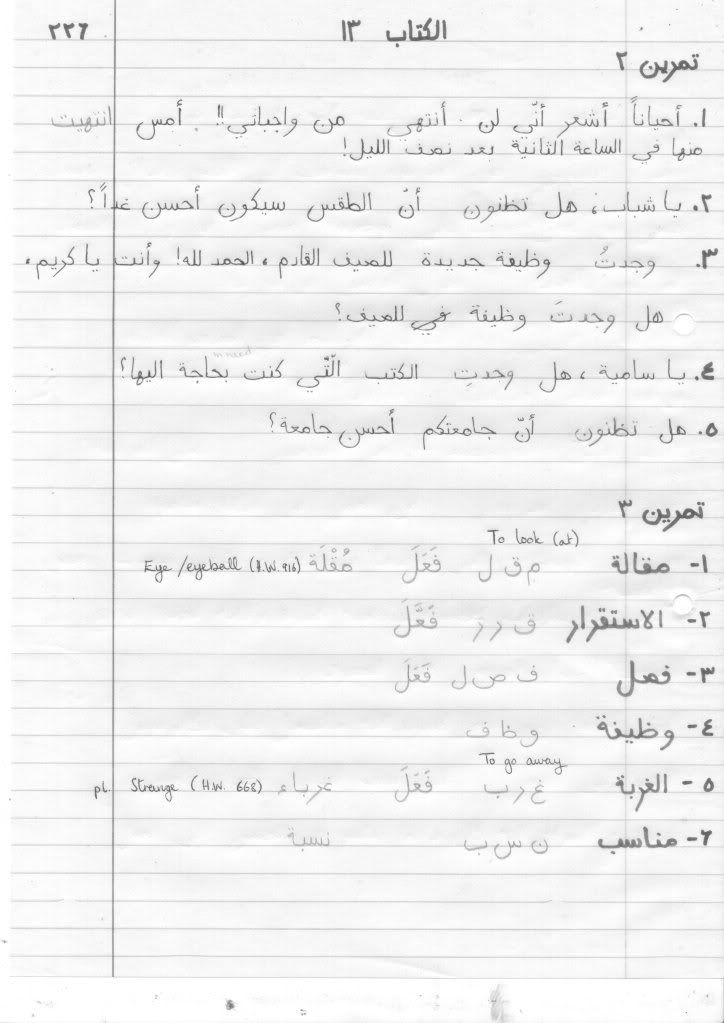 الكتاب ١٣ ٢٢٦
تمرين ٢
١. أحياناً أشعر أنّي لن أنتهي من واجباتي!! أمس انتهيت
منها في الساعة الثانية بعد نصف الليل!
٢. يا شباب، هل تظنون أنّ الطقس سيكون أحسن غداً؟
٣. وجدتُ وظيفة جديدة للصيف القادم، الحمد لله! وأنت يا كريم،
هل وجدتَ وظيفة في للصيف؟
in need
٤. يا سامية، هل وجدتِ الكتب الّتي كنت بحاجة اليها؟
٥. هل تظنون أنّ جامعتكم أحسن جامعة؟
تمرين ٣
To look (at)
١- مقالة م ق ل فَعَلَ مُقْلَة Eye/eyeball (H.W. 916)
٢- الاستقرار ق ر ر فَعَّلَ
٣- فصل ف ص ل فَعَلَ
٤- وظيفة و ظ ف
To go away
٥- الغربة غ ر ب فَعَلَ غرباء Strange (H.W. 668) pl.
٦- مناسب ن س ب نسبة